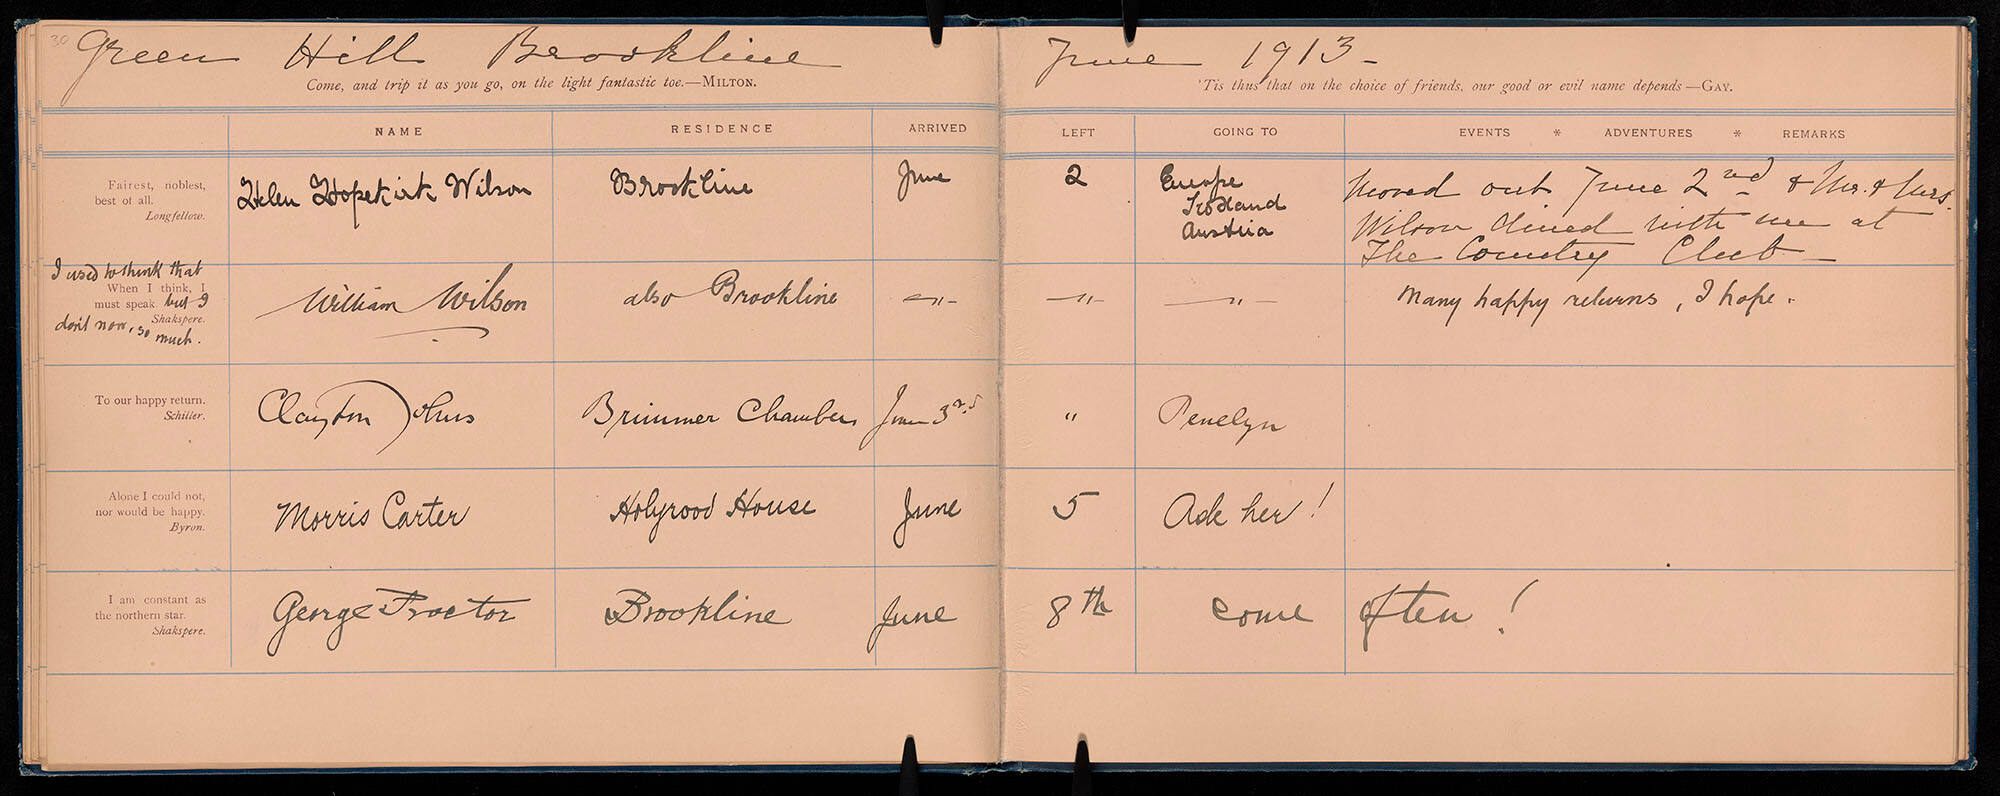 30 Green Hill Brookline June 1913 -
Come, and trip it as you go, on the light fantastic toe.—MILTON.
'Tis thus that on the choice of friends, our good or evil name depends—GAY.
NAME RESIDENCE ARRIVED LEFT GOING TO EVENTS * ADVENTURES * REMARKS
Fairest, noblest,
best of all.
Longfellow.
Helen Hopekirk Wilson Brookline June 2 Europe
Scotland
Austria
Moved out June 2nd & Mr. & Mrs.
Wilson dined with me at
The Country Club —
I used to think that
When I think, I
must speak. but I
Shakspere.
don't now, so much.
William Wilson also Brookline —"— —"— —"— Many happy returns, I hope.
To our happy return.
Schiller.
Clayton Johns Brimmer Chambers June 3rd " Penelyn
Alone I could not,
nor would be happy.
Byron.
Morris Carter Holyrood House June 5 Ask her!
I am constant as
the northern star.
Shakspere.
George Proctor Brookline June 8th come often!